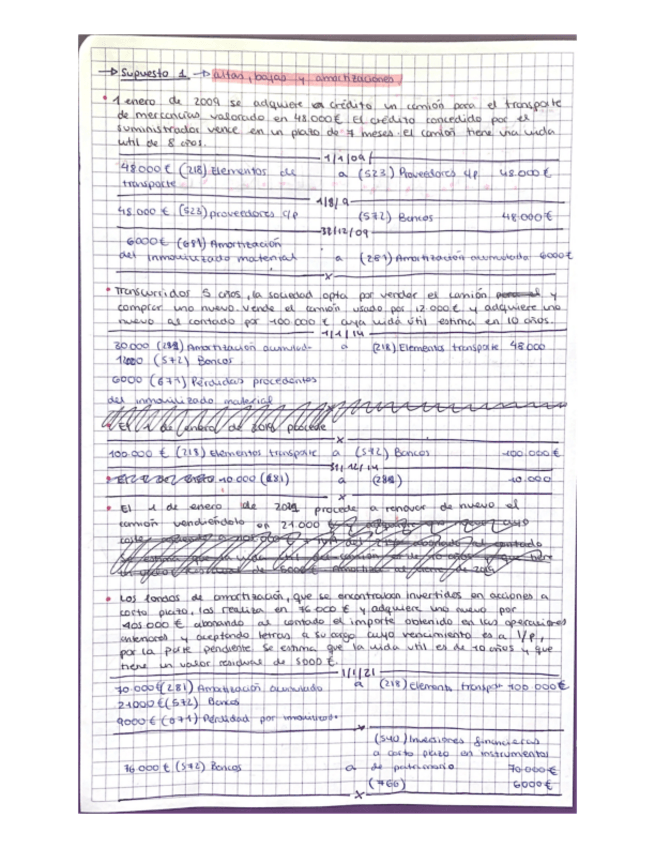 → Supuesto 1 → altas, bajas y amortizaciones
• 1 enero de 2009 se adquiere a crédito un camión para el transporte
de mercancías valorado en 48.000 €. El crédito concedido por el
suministrador vence en un plazo de 7 meses. El camión tiene vida
util de 8 años.
1/1/09
48.000 € (218) Elementos de a (523) Proveedores c/p 48.000 €
transporte
1/8/9
48.000 € (523) proveedores c/p (572) Bancos 48.000 €
/12/09
6000 € (681) Amortización
del inmovilizado material a (281) Amortización acumulada 6000 €
x
• Transcurridos 5 años, la sociedad opta por vender el camión y
comprar uno nuevo. Vende el camión usado por 12.000 € y adquiere uno
nuevo al contado por 100.000 € cuya vida útil estima en 10 años.
1/1/14
30000 (281) Amortización acumulad. a (218) Elementos transporte 48000
12000 (572) Bancos
6000 (671) Pérdidas procedentes
del inmovilizado material
El 1 de enero de procede
x
100.000 € (218) Elementos transporte a (572) Bancos 100.000 €
31/12/14
10.000 (681) a (281) 10.000
x
• El 1 de enero de 2021 procede a renovar de nuevo el
camión vendiéndolo en 21000
• Los fondos de amortización, que se encontraban invertidos en acciones a
corto plazo, los realiza en 76000 € y adquiere uno nuevo por
405000 € abonando al contado el importe obtenido en las operaciones
anteriores y aceptando letras a su cargo cuyo vencimiento es a l/p,
por la parte pendiente. Se estima que la vida util es de 10 años y que
tiene un valor residual de 5000 €.
1/1/21
70.000 € (281) Amortización acumulada a (218) elements transpor 100 000 €
21000 € (572) Bancos
9000 € (671) Pérdidad por inmoviliz.
x
(540) Inversiones financieras
a corto plazo en instrumentos
76.000 € (572) Bancos a de patrimonio 70.000 €
(766) 6000 €
x